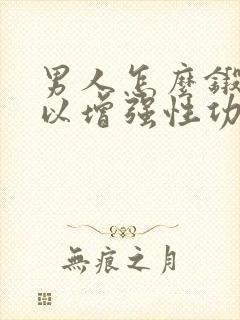 男人怎麼鍛
以增强性功
無痕之月